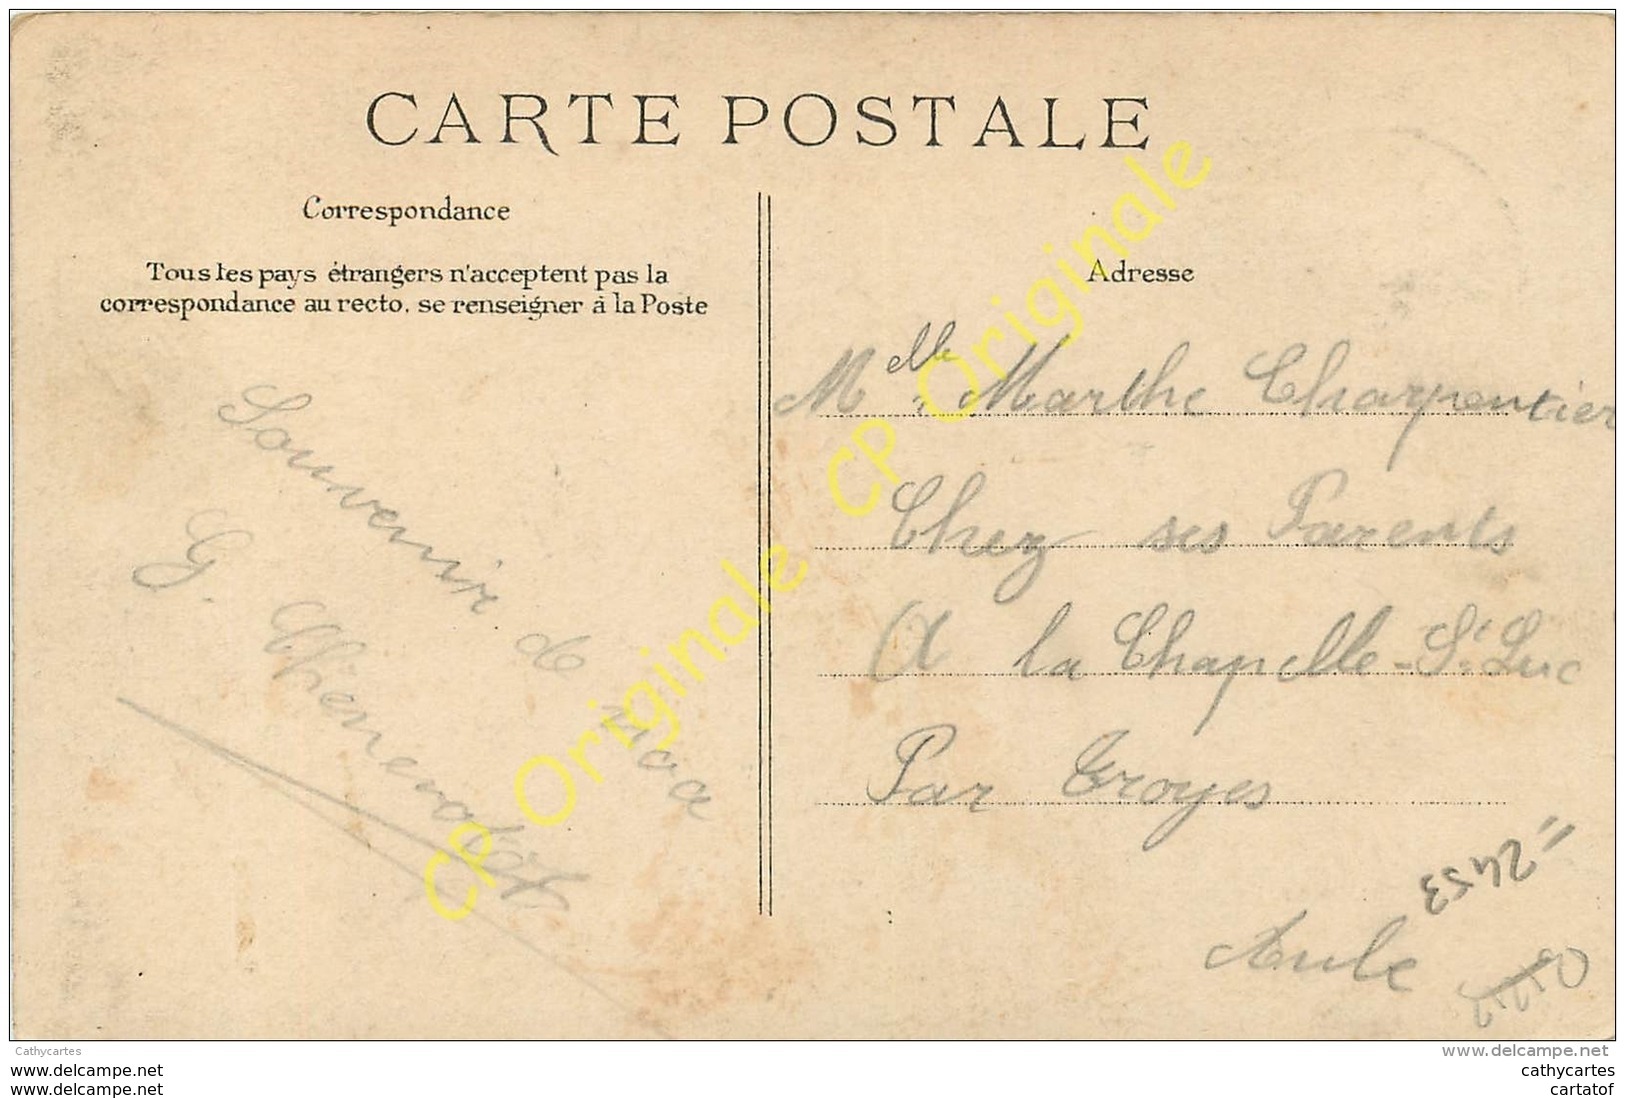 CARTE POSTALE
Correspondance
Tous les pays étrangers n'acceptent pas la
correspondance au recto. se renseigner à la Poste
Souvenir de
G.
Adresse
Melle Marthe Charpentier
Chez ses Parents
A la Chapelle-St-Luc
Par Troyes
Aube
2453
CP Originale CP Originale
Cathycartes
www.delcampe.net
www.delcampe.net
www.delcampe.net
cathycartes
cartatof